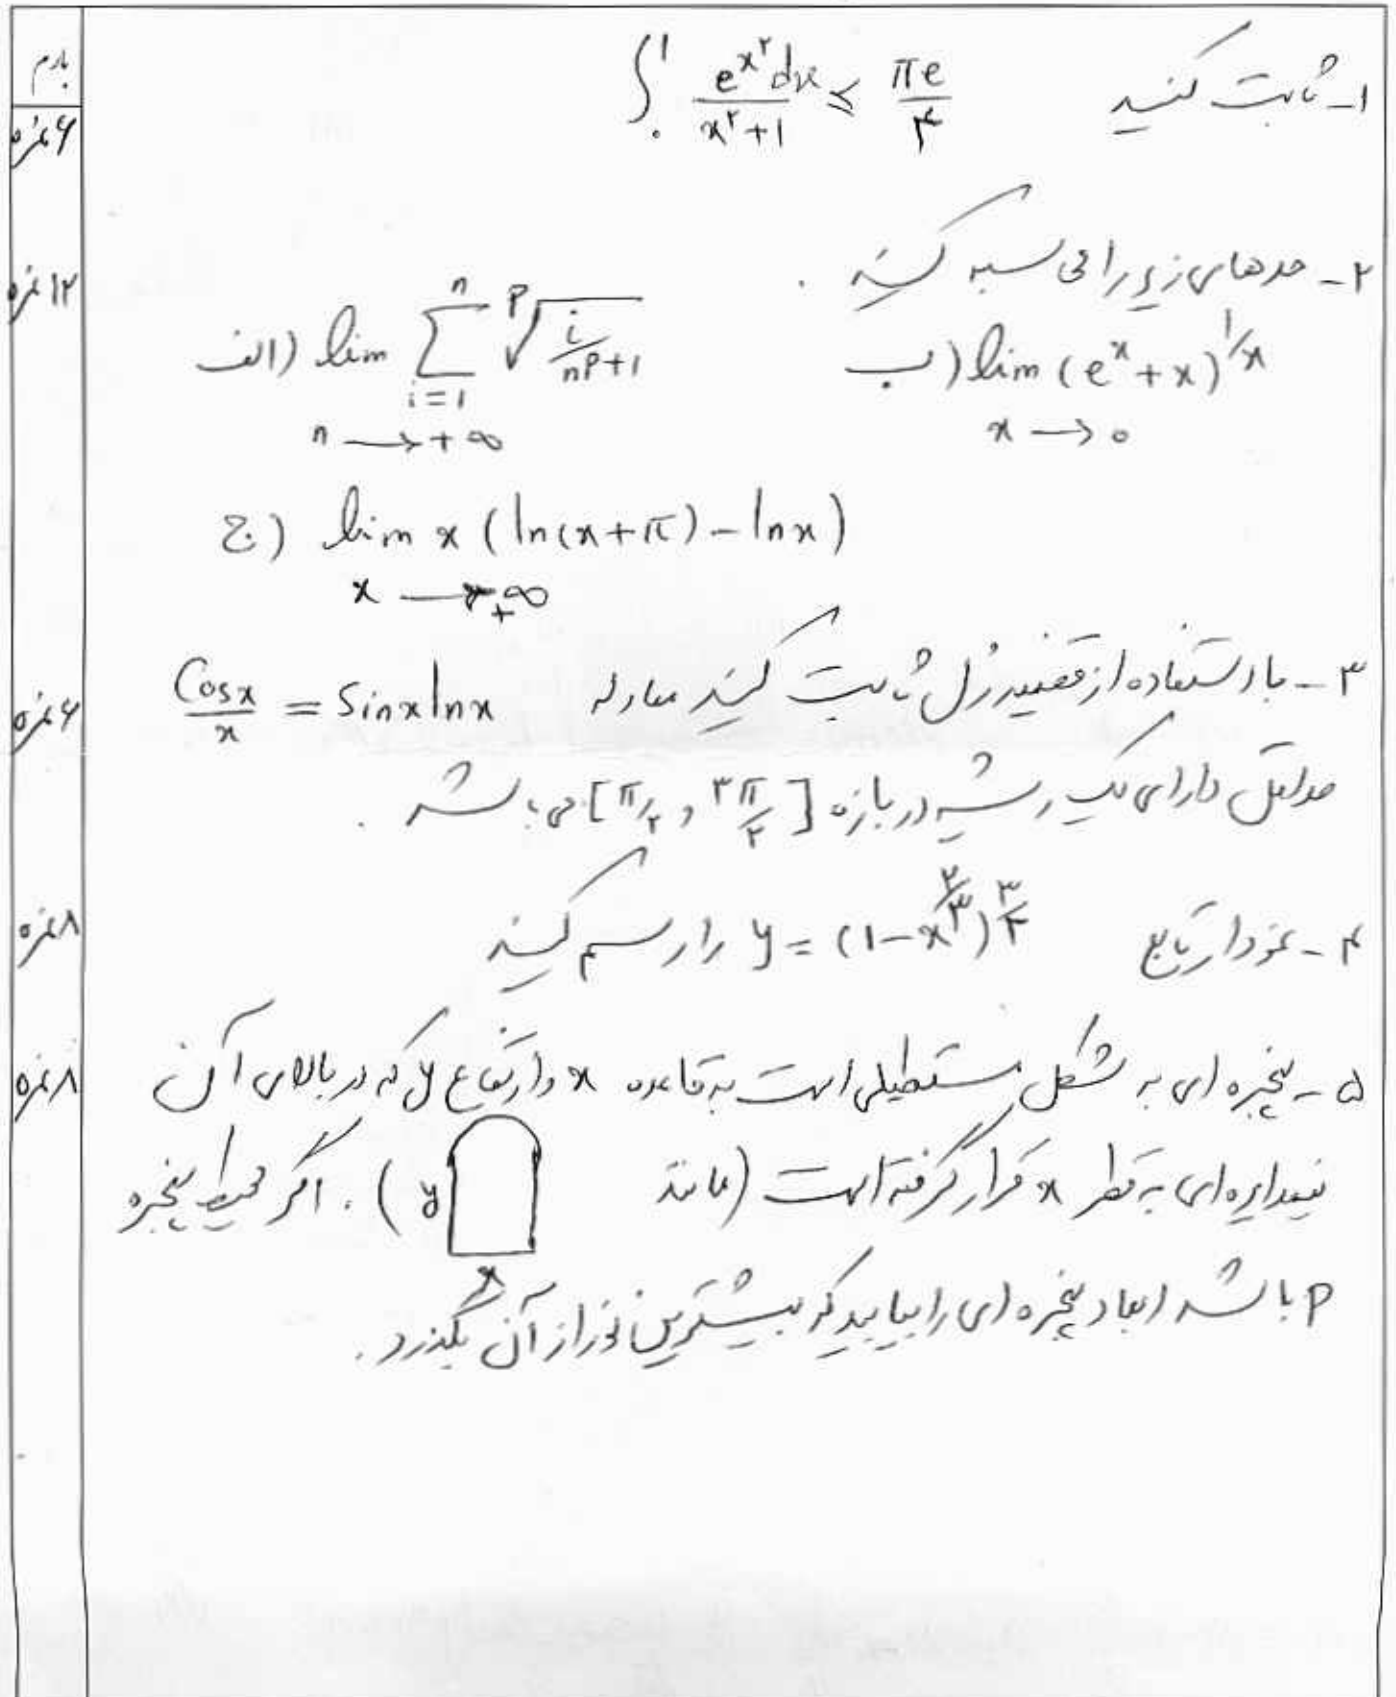 بارم
۱- ثابت کنید ∫₀¹ e^(x^۲) dx / (x^۲+1) ≤ πe/۴
۶ نمره
۲- حدهای زیر را محاسبه کنید .
۱۲ نمره
الف) lim n→+∞ Σ i=1 n ᴾ√(i/(n^(P+1))) ب) lim x→0 (e^x + x)^(1/x)
ج) lim x→+∞ x (ln(x+π) - ln x)
۳- با استفاده از قضیه رل ثابت کنید معادله Cosx/x = Sinx lnx
۶ نمره
حداقل دارای یک ریشه در بازه [π/۲ , ۳π/۲] می باشد .
۴- نمودار تابع y = (1-x^(۲/۳))^(۳/۲) را رسم کنید
۸ نمره
۵- پنجره ای به شکل مستطیلی است به قاعده x و ارتفاع y که در بالای آن
۸ نمره
نیمدایره ای به قطر x قرار گرفته است (مانند y x ) . اگر محیط پنجره
P باشد ابعاد پنجره ای را بیابید که بیشترین نور از آن بگذرد .